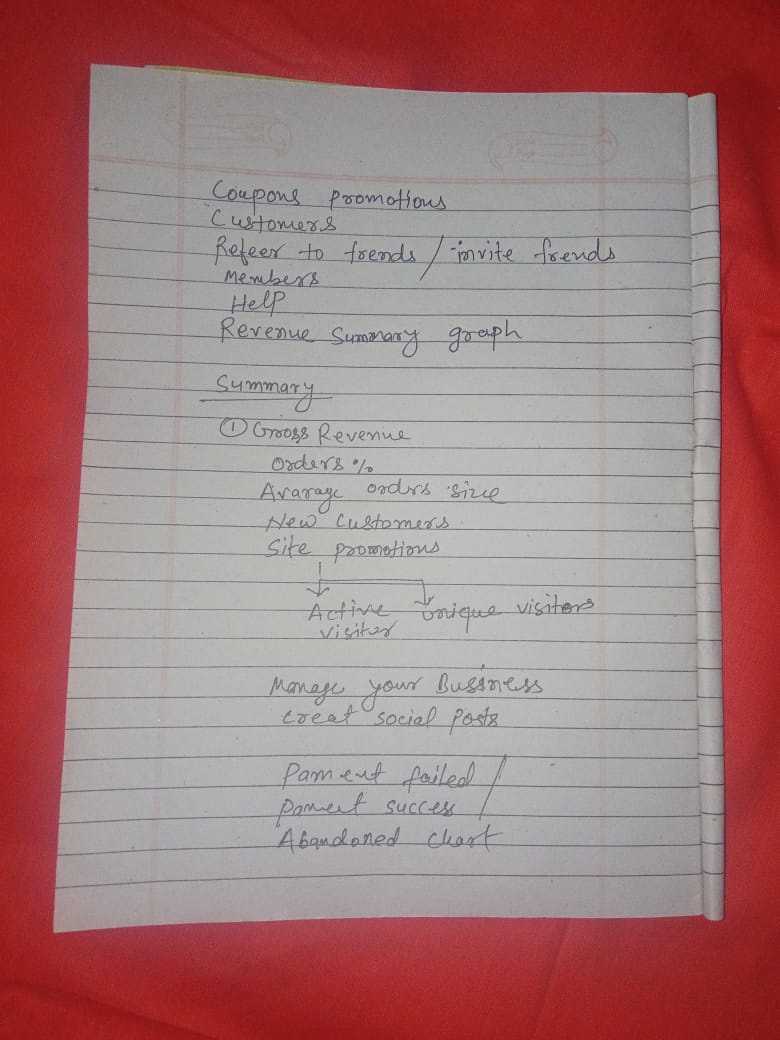 Coupons promotions
Customers
Refeer to frends / invite frends
Members
Help
Revenue Summary graph
Summary
① Gross Revenue
Orders %
Avarage orders size
New Customers
Site promotions
Active unique visitors
visitor
Manage your Bussiness
creat social Posts
Pament failed /
pament success /
Abandoned chart